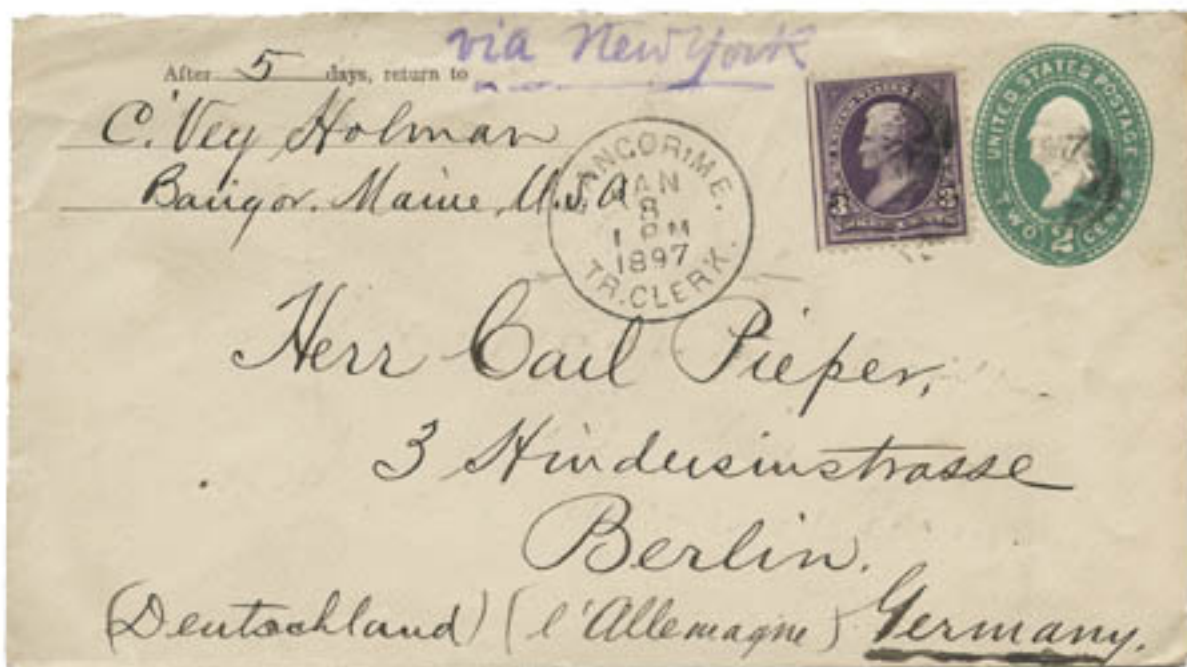 via New York
After 5 days, return to
C. Vey Holman
Bangor. Maine, U.S.A
BANGOR, ME.
JAN
8
1 PM
1897
TR. CLERK.
3 3
UNITED STATES POSTAGE
TWO 2 CENTS
Herr Carl Pieper,
3 Hindersinstrasse
Berlin.
(Deutschland) (l'Allemagne) Germany.